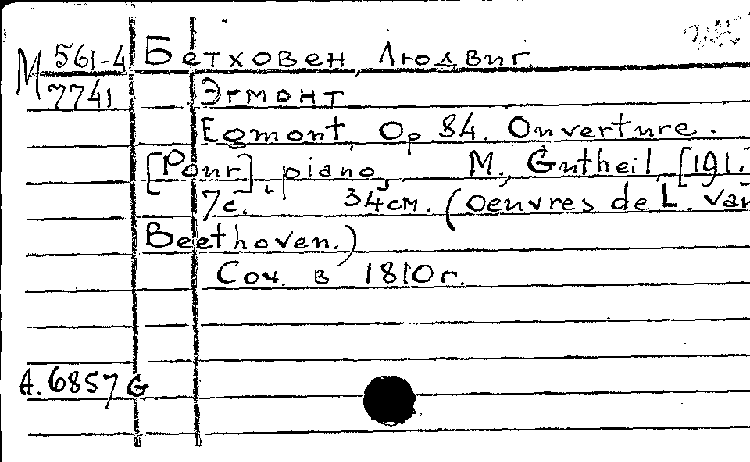 М 561-4 Бетховен, Людвиг
7741 Эгмонт
Egmont, Op 84. Ouverture.
[Pour], piano, M., Gutheil, [191.
7с. 34см. (Oeuvres de L. van
Beethoven.)
Соч. в 1810г.
А. 6857 G